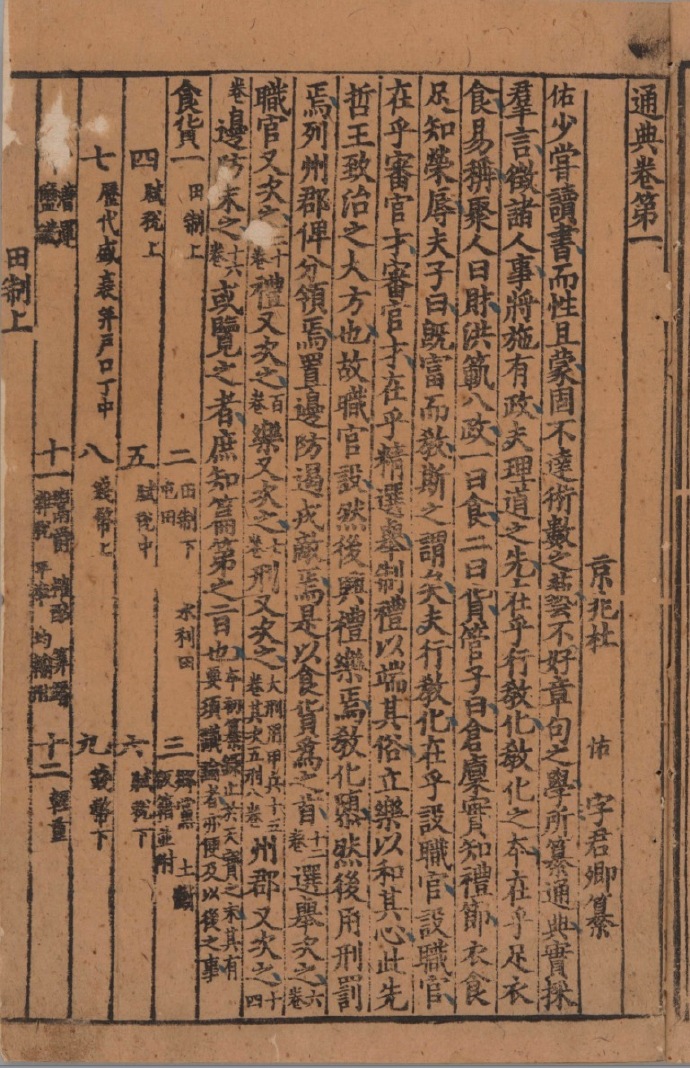 通典卷第一
京兆杜 佑 字君卿纂
佑少嘗讀書而性且蒙固不達術數之藝不好章句之學所纂通典實採
羣言徵諸人事將施有政夫理道之先在乎行教化教化之本在乎足衣
食易稱聚人曰財洪範八政一曰食二曰貨管子曰倉廩實知禮節衣食
足知榮辱夫子曰既富而教斯之謂矣夫行教化在乎設職官設職官
在乎審官才審官才在乎精選舉制禮以端其俗立樂以和其心此先
哲王致治之大方也故職官設然後興禮樂焉教化隳然後用刑罰
焉列州郡俾分領焉置邊防遏戎敵焉是以食貨為之首十二卷選舉次之六卷
職官又次之二十卷禮又次之百卷樂又次之七卷刑又次之大刑用甲兵十三卷其次五刑八卷州郡又次之十四
卷邊防末之十六卷或覽之者庶知篇第之旨也本初纂錄止於天寶之末其有要須議論者亦便及以後之事
食貨一 田制上 二 田制下 屯田 水利田 三 鄉黨 土斷 版籍並附
四 賦稅上 五 賦稅中 六 賦稅下
七 歷代盛衰年戶口丁中 八 錢幣上 九 錢幣下
漕運 鹽鐵 十一 鬻爵 榷酤 算緡 雜稅 平準 均輸附 十二 輕重
田制上